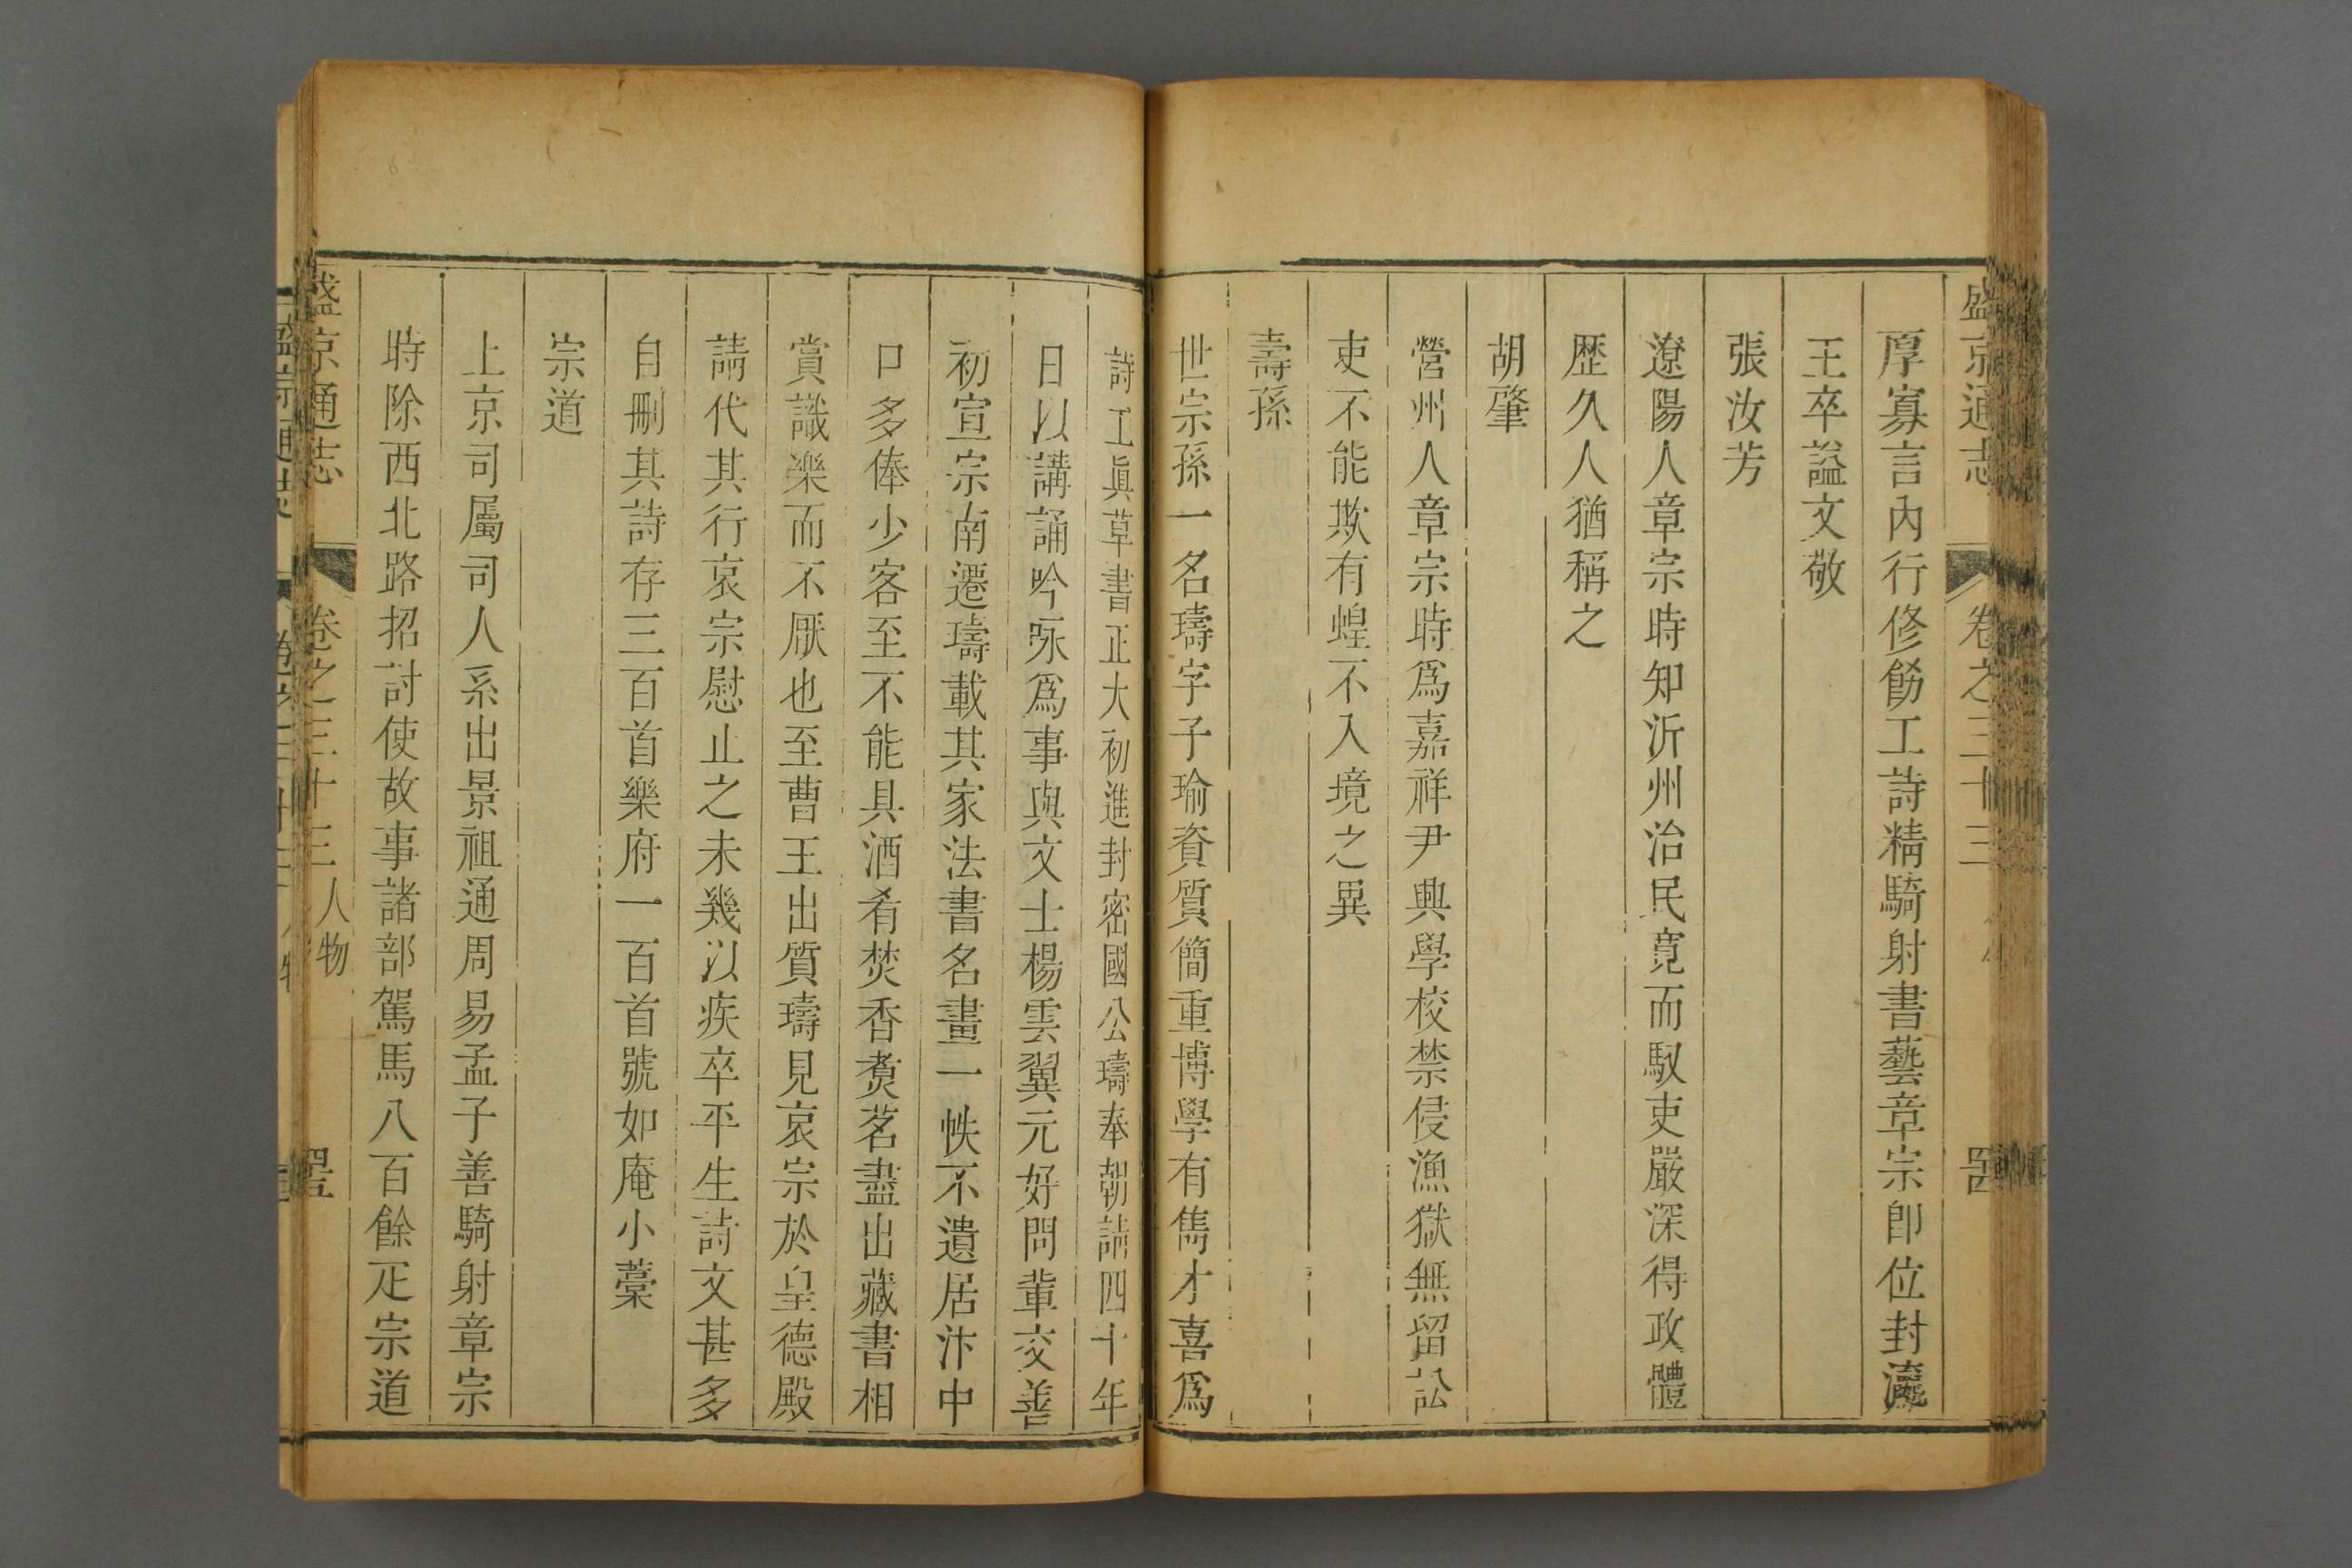 盛京通志 卷之三十三
厚寡言內行修飭工詩精騎射書藝章宗卽位封瀛
王卒謚文敬
張汝芳
遼陽人章宗時知沂州治民寬而馭吏嚴深得政體
歷久人猶稱之
胡肇
營州人章宗時爲嘉祥尹興學校禁侵漁獄無留訟
吏不能欺有蝗不入境之異
壽孫
世宗孫一名璹字子瑜資質簡重博學有雋才喜爲
詩工眞草書正大初進封密國公璹奉朝請四十年
日以講誦吟咏爲事與文士楊雲翼元好問輩交善
初宣宗南遷璹載其家法書名畫一帙不遺居汴中
口多俸少客至不能具酒肴焚香煑茗盡出藏書相
賞識樂而不厭也至曹王出質璹見哀宗於皇德殿
請代其行哀宗慰止之未幾以疾卒平生詩文甚多
自刪其詩存三百首樂府一百首號如庵小藁
宗道
上京司屬司人系出景祖通周易孟子善騎射章宗
時除西北路招討使故事諸部駕馬八百餘疋宗道
盛京通志 卷之三十三 人物